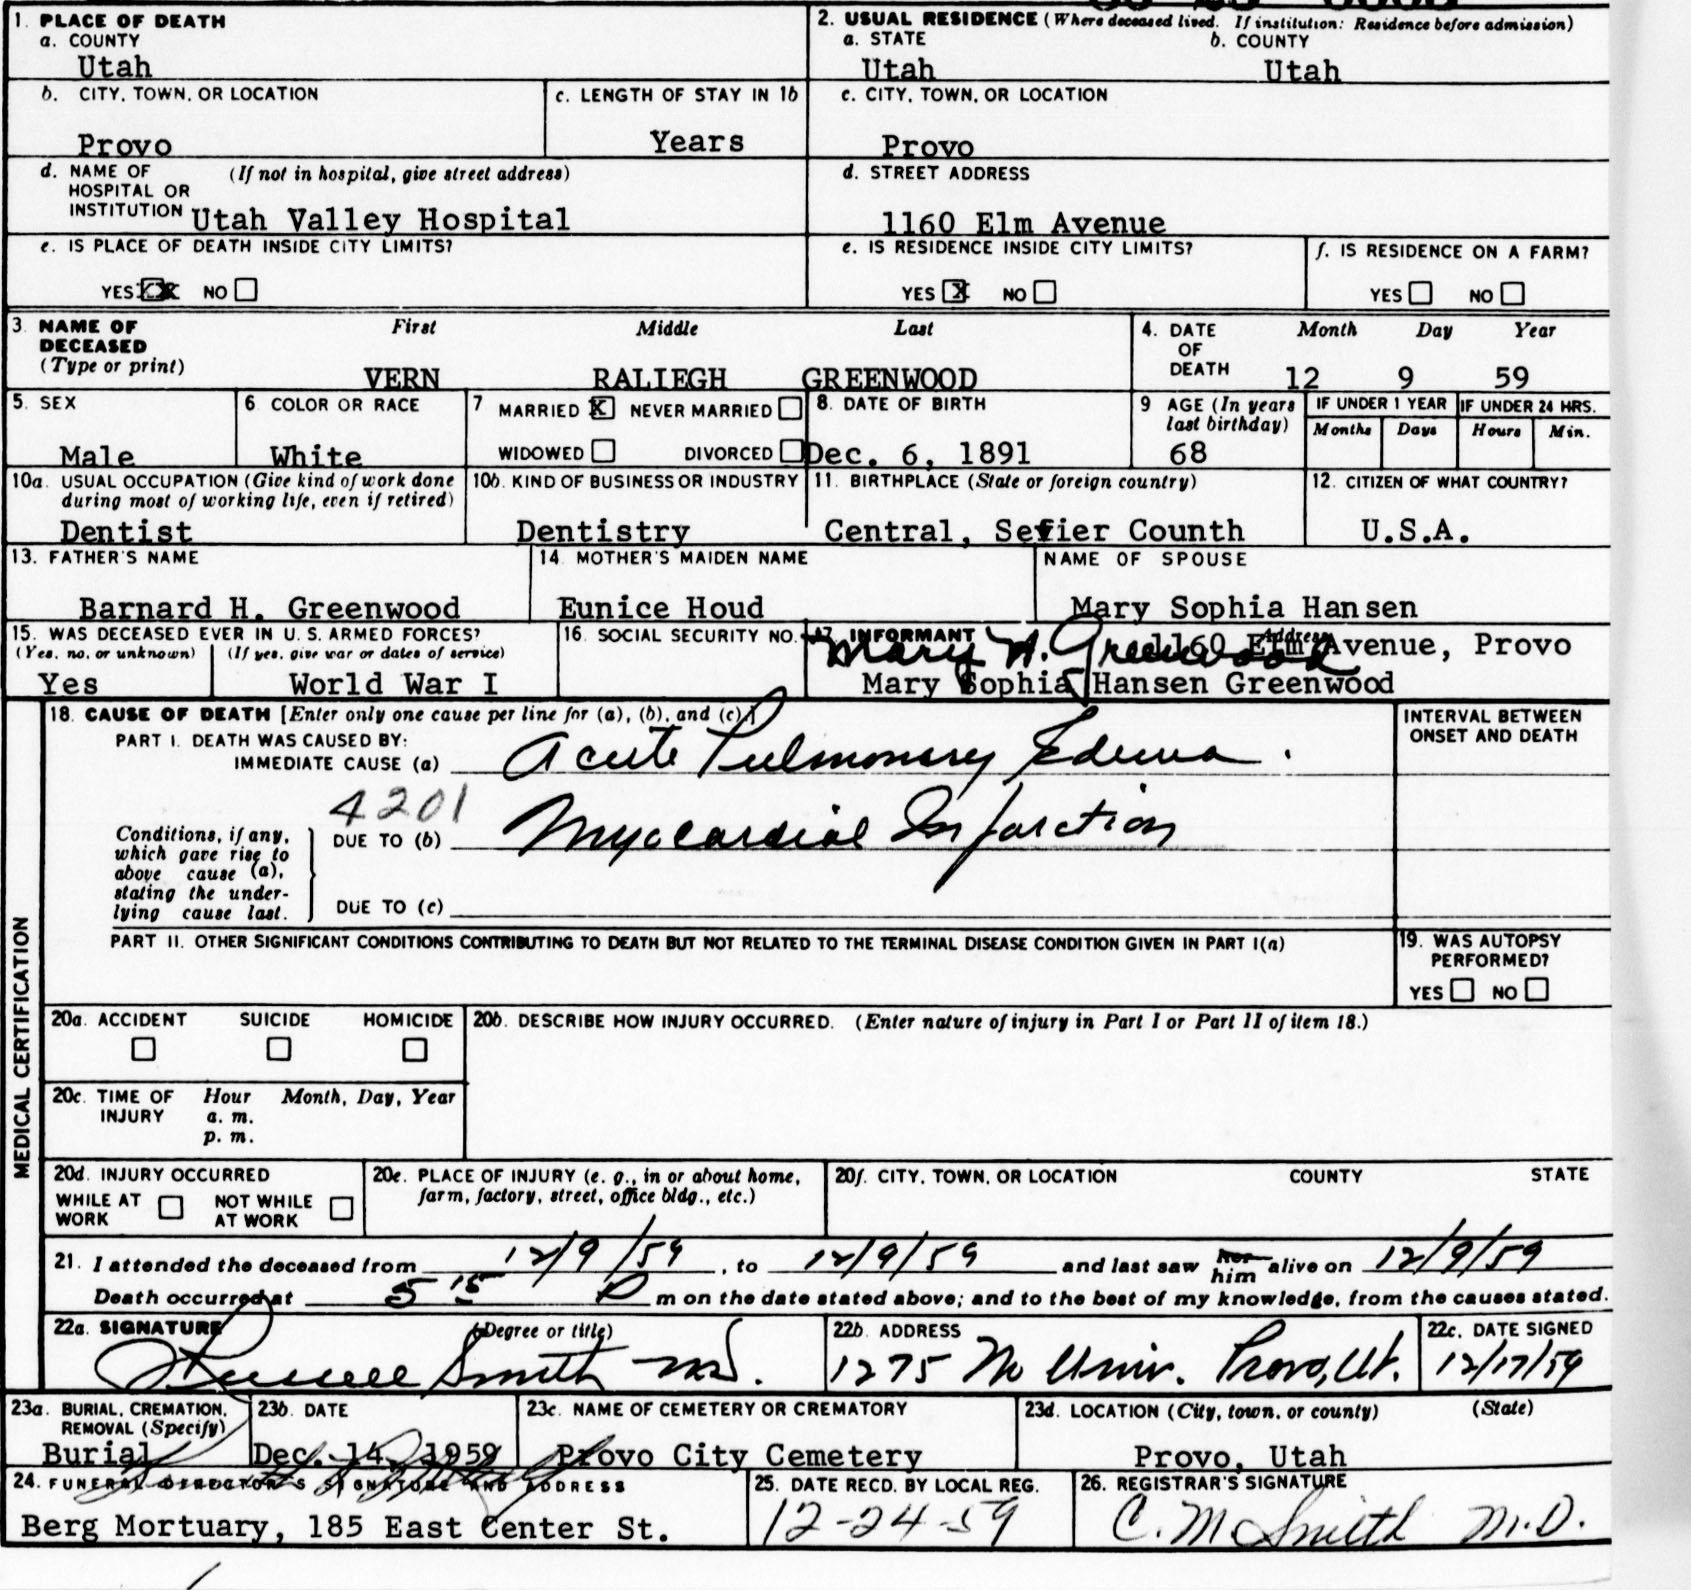 1. PLACE OF DEATH
a. COUNTY
Utah
2. USUAL RESIDENCE (Where deceased lived. If institution: Residence before admission)
a. STATE b. COUNTY
Utah Utah
b. CITY, TOWN, OR LOCATION
Provo
c. LENGTH OF STAY IN 1b
Years
c. CITY, TOWN, OR LOCATION
Provo
d. NAME OF (If not in hospital, give street address)
HOSPITAL OR
INSTITUTION Utah Valley Hospital
d. STREET ADDRESS
1160 Elm Avenue
e. IS PLACE OF DEATH INSIDE CITY LIMITS?
YES NO
e. IS RESIDENCE INSIDE CITY LIMITS?
YES X NO
f. IS RESIDENCE ON A FARM?
YES NO
3. NAME OF First Middle Last
DECEASED
(Type or print)
VERN RALIEGH GREENWOOD
4. DATE Month Day Year
OF
DEATH 12 9 59
5. SEX
Male
6. COLOR OR RACE
White
7 MARRIED X NEVER MARRIED
WIDOWED DIVORCED
8. DATE OF BIRTH
Dec. 6, 1891
9 AGE (In years
last birthday)
68
IF UNDER 1 YEAR
Months Days
IF UNDER 24 HRS.
Hours Min.
10a. USUAL OCCUPATION (Give kind of work done
during most of working life, even if retired)
Dentist
10b. KIND OF BUSINESS OR INDUSTRY
Dentistry
11. BIRTHPLACE (State or foreign country)
Central, Sevier Counth
12. CITIZEN OF WHAT COUNTRY?
U.S.A.
13. FATHER'S NAME
Barnard H. Greenwood
14. MOTHER'S MAIDEN NAME
Eunice Houd
NAME OF SPOUSE
Mary Sophia Hansen
15. WAS DECEASED EVER IN U. S. ARMED FORCES?
(Yes, no, or unknown) (If yes, give war or dates of service)
Yes World War I
16. SOCIAL SECURITY NO.
17. INFORMANT Address
Mary H. Greenwood
1160 Elm Avenue, Provo
Mary Sophia Hansen Greenwood
MEDICAL CERTIFICATION
18. CAUSE OF DEATH [Enter only one cause per line for (a), (b), and (c).]
PART I. DEATH WAS CAUSED BY:
IMMEDIATE CAUSE (a) Acute Pulmonary Edema.
4201
Conditions, if any,
which gave rise to
above cause (a),
stating the under-
lying cause last.
DUE TO (b) Myocardial Infarction
DUE TO (c)
INTERVAL BETWEEN
ONSET AND DEATH
PART II. OTHER SIGNIFICANT CONDITIONS CONTRIBUTING TO DEATH BUT NOT RELATED TO THE TERMINAL DISEASE CONDITION GIVEN IN PART I(a)
19. WAS AUTOPSY
PERFORMED?
YES NO
20a. ACCIDENT SUICIDE HOMICIDE
20b. DESCRIBE HOW INJURY OCCURRED. (Enter nature of injury in Part I or Part II of item 18.)
20c. TIME OF Hour Month, Day, Year
INJURY a. m.
p. m.
20d. INJURY OCCURRED
WHILE AT NOT WHILE
WORK AT WORK
20e. PLACE OF INJURY (e. g., in or about home,
farm, factory, street, office bldg., etc.)
20f. CITY, TOWN, OR LOCATION COUNTY STATE
21. I attended the deceased from 12/9/59, to 12/9/59 and last saw her him alive on 12/9/59
Death occurred at 5 15 P m on the date stated above; and to the best of my knowledge, from the causes stated.
22a. SIGNATURE (Degree or title)
Russell Smith MD.
22b. ADDRESS
1275 No Univ. Provo, Ut.
22c. DATE SIGNED
12/17/59
23a. BURIAL, CREMATION,
REMOVAL (Specify)
Burial
23b. DATE
Dec. 14, 1959
23c. NAME OF CEMETERY OR CREMATORY
Provo City Cemetery
23d. LOCATION (City, town, or county) (State)
Provo, Utah
24. FUNERAL DIRECTOR'S SIGNATURE AND ADDRESS
Berg Mortuary, 185 East Center St.
25. DATE RECD. BY LOCAL REG.
12-24-59
26. REGISTRAR'S SIGNATURE
C. M Smith M.D.